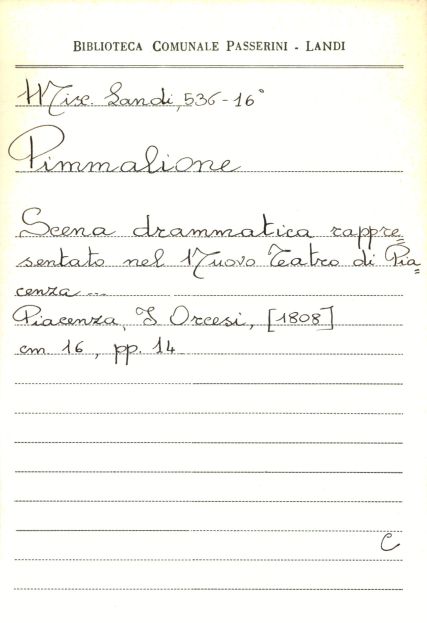 BIBLIOTECA COMUNALE PASSERINI - LANDI
Misc. Landi, 536-16°
Pimmalione
Scena drammatica rappre=
sentato nel Nuovo Teatro di Pia=
cenza ...
Piacenza, I Orcesi, [1808]
cm. 16, pp. 14
C